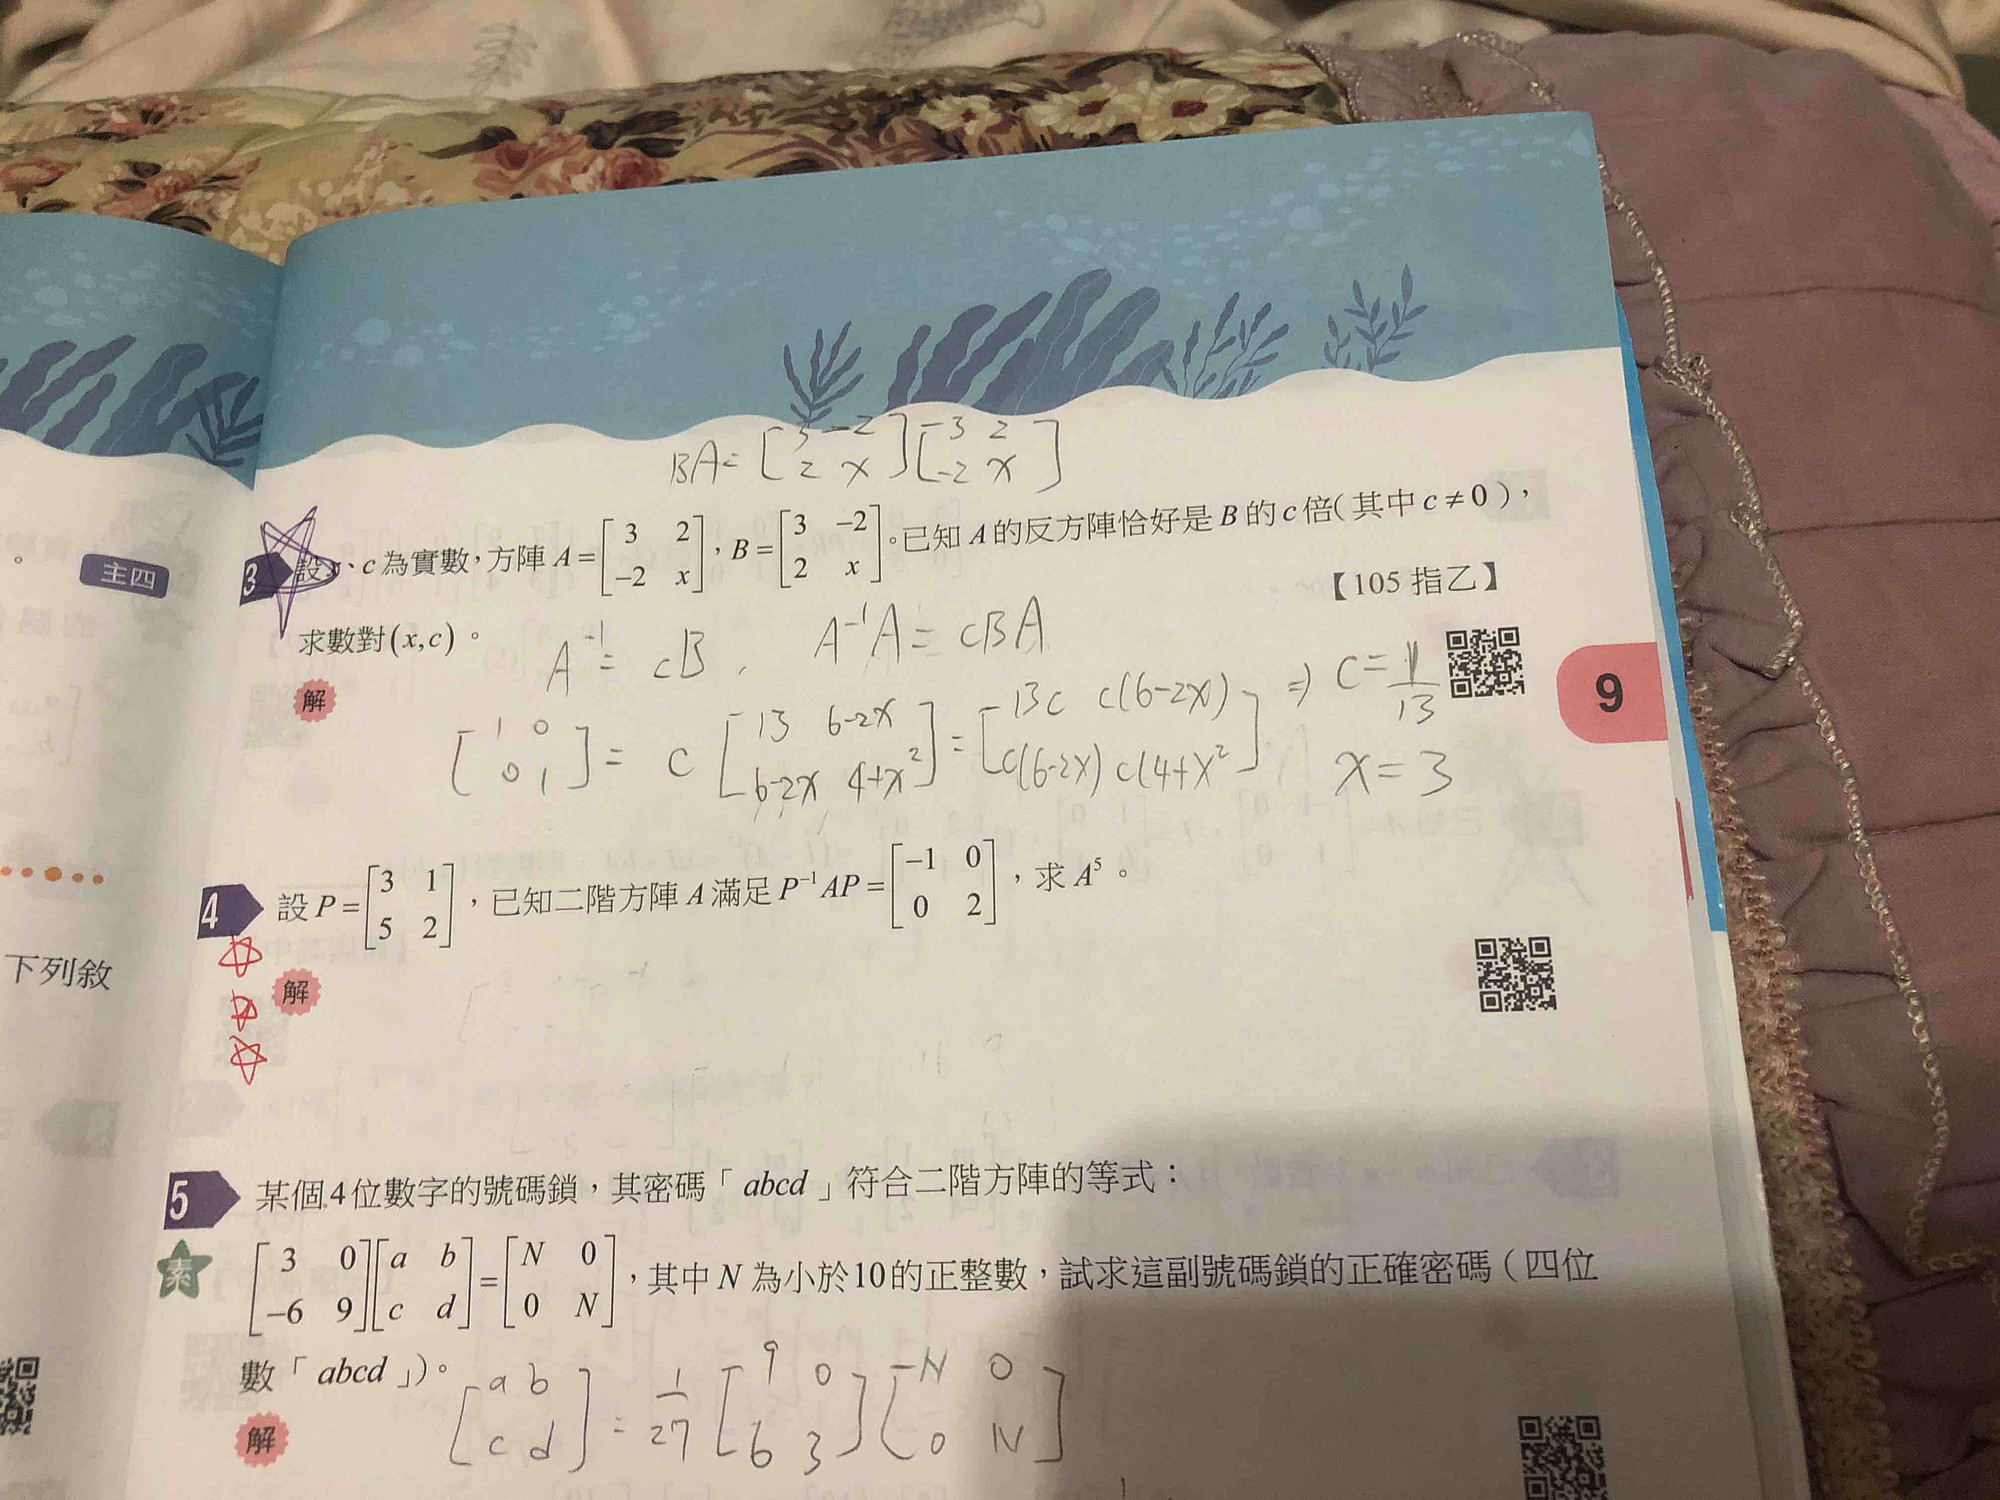 BA = [3 -2; 2 x][3 2; -2 x]
3 設x、c為實數，方陣 A = [3 2; -2 x]，B = [3 -2; 2 x]。已知 A 的反方陣恰好是 B 的 c 倍（其中 c ≠ 0），
【105 指乙】
求數對(x,c)。
A⁻¹ = cB, A⁻¹A = cBA
解
[1 0; 0 1] = c [13 6-2x; 6-2x 4+x²] = [13c c(6-2x); c(6-2x) c(4+x²] ⇒ c = 1/13
x = 3
9
主四
4 設 P = [3 1; 5 2]，已知二階方陣 A 滿足 P⁻¹AP = [-1 0; 0 2]，求 A⁵。
解
下列敘
5 某個4位數字的號碼鎖，其密碼「abcd」符合二階方陣的等式：
素 [3 0; -6 9][a b; c d] = [N 0; 0 N]，其中 N 為小於10的正整數，試求這副號碼鎖的正確密碼（四位
數「abcd」）。
解
[a b; c d] = 1/27 [9 0; 6 3][N 0; 0 N]